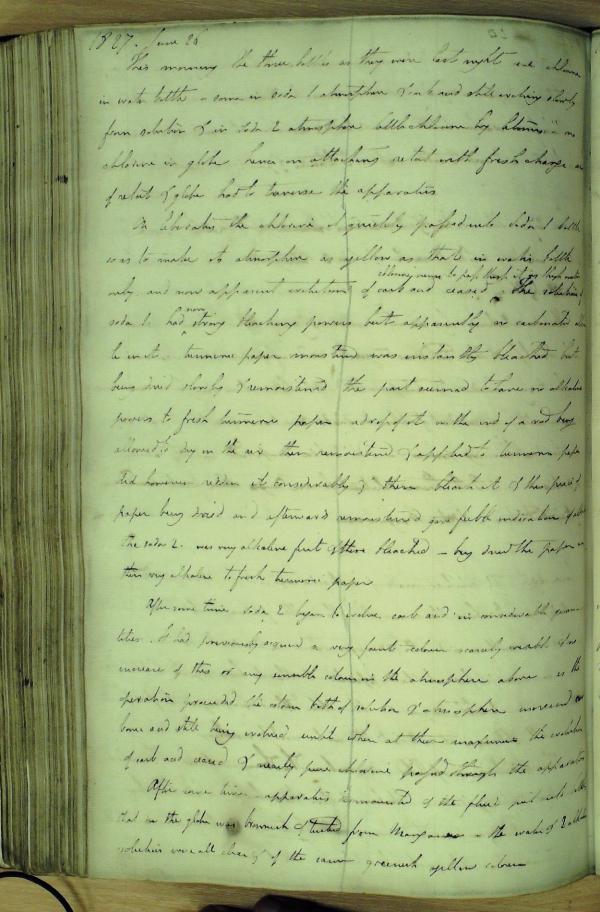 1827. June 26
This morning the three bottles as they were last night and chlorine
in water bottle & some in soda 1 atmosphere & carb acid still evolving slowly
from solution & in soda 2 atmosphere
chlorine in globe hence on attaching retort with fresh charge
of retort & globe had to traverse the apparatus
On liberating the chlorine it quickly passed into soda 1 bottle
so as to make its atmosphere as yellow as that in water bottle
only and now apparent evolution of carb acid ceased. The solution
soda 1. had now strong bleaching powers but apparently no carbonated
turmeric paper moistened was instantly bleached but
being dried slowly & remoistened the part seemed to have no alkaline
powers to fresh turmeric paper a drop of it on the end of a rod being
allowed to dry in the air then remoistened & applied to turmeric paper
did however redden it considerably & then bleach it & this piece of
paper being dried and afterwards remoistened gave feeble indication of
The soda 2. was very alkaline first & then bleached – being dried the paper
then very alkaline to fresh turmeric paper
After some time soda 2 began to evolve carb acid in considerable quan
tities. It had previously acquired a very faint colour scarcely visible
increase of this or any sensible colour in the atmosphere above as the
operation proceeded the colour both of solution & atmosphere increased
carb acid still being evolved until when at their maximum the evolution
of carb acid ceased & nearly pure chlorine passed through the apparatus
After some time apparatus dismounted & the fluid put into
that in the globe was brownish & tinted from Manganese – the water & 2
solution were all clear & of the same greenish yellow colour